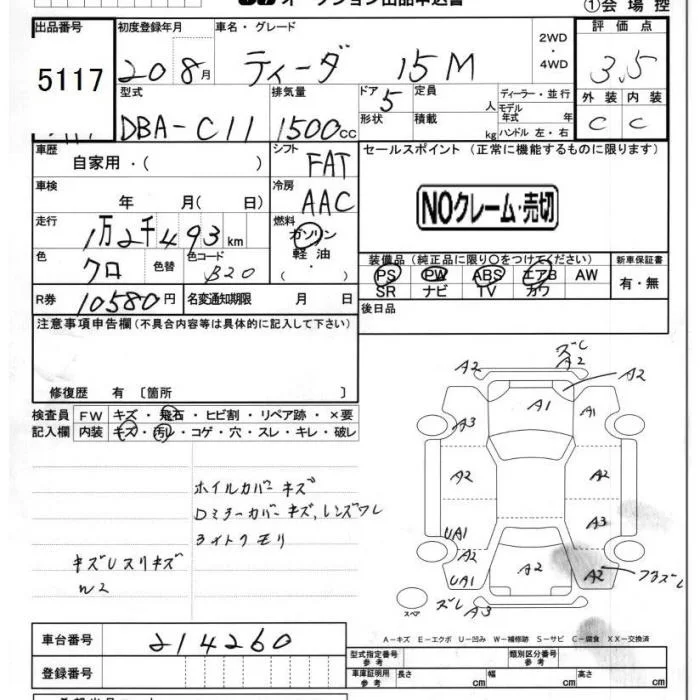 オークション出品申込書
①会場控
出品番号 初度登録年月 車名・グレード 2WD・4WD 評価点
5117 20 8月 ティーダ 15M 3.5
型式 排気量 ドア 定員 人 ディーラー・並行 外装 内装
DBA-C11 1500cc 5 モデル年式 年 C C
形状 積載 kg ハンドル 左・右
車歴 自家用・( ) シフト FAT セールスポイント (正常に機能するものに限ります)
車検 年 月( 日) 冷房 AAC
NOクレーム・売切
走行 1万2千493km 燃料 ガソリン
軽油・( ・ )
色 クロ 色替 色コード B20
装備品(純正品に限り○をつけてください) 新車保証書
PS PW ABS エアB AW 有・無
SR ナビ TV カワ
R券 10580円 名変通知期限 月 日
後日品
注意事項申告欄(不具合内容等は具体的に記入して下さい)
修復歴 有 〔箇所 〕
検査員 FW キズ・飛石・ヒビ割・リペア跡・×要
記入欄 内装 キズ・汚レ・コゲ・穴・スレ・キレ・破レ
ホイルカバーキズ
Dミラーカバーキズ、レンズワレ
ライトクモリ
キズUスリキズ
W2
ズレ
A2 A2 A2
A1 A1
A3
A2 A2
A3
UA1
A2 A2 A2
UA1
ズレ A3
スペア
A-キズ E-エクボ U-凹み W-補修跡 S-サビ C-腐食 XX-交換済
車台番号 214260
型式指定番号 参考 類別区分番号 参考
登録番号
車庫証明用 参考 長さ cm 幅 cm 高さ cm